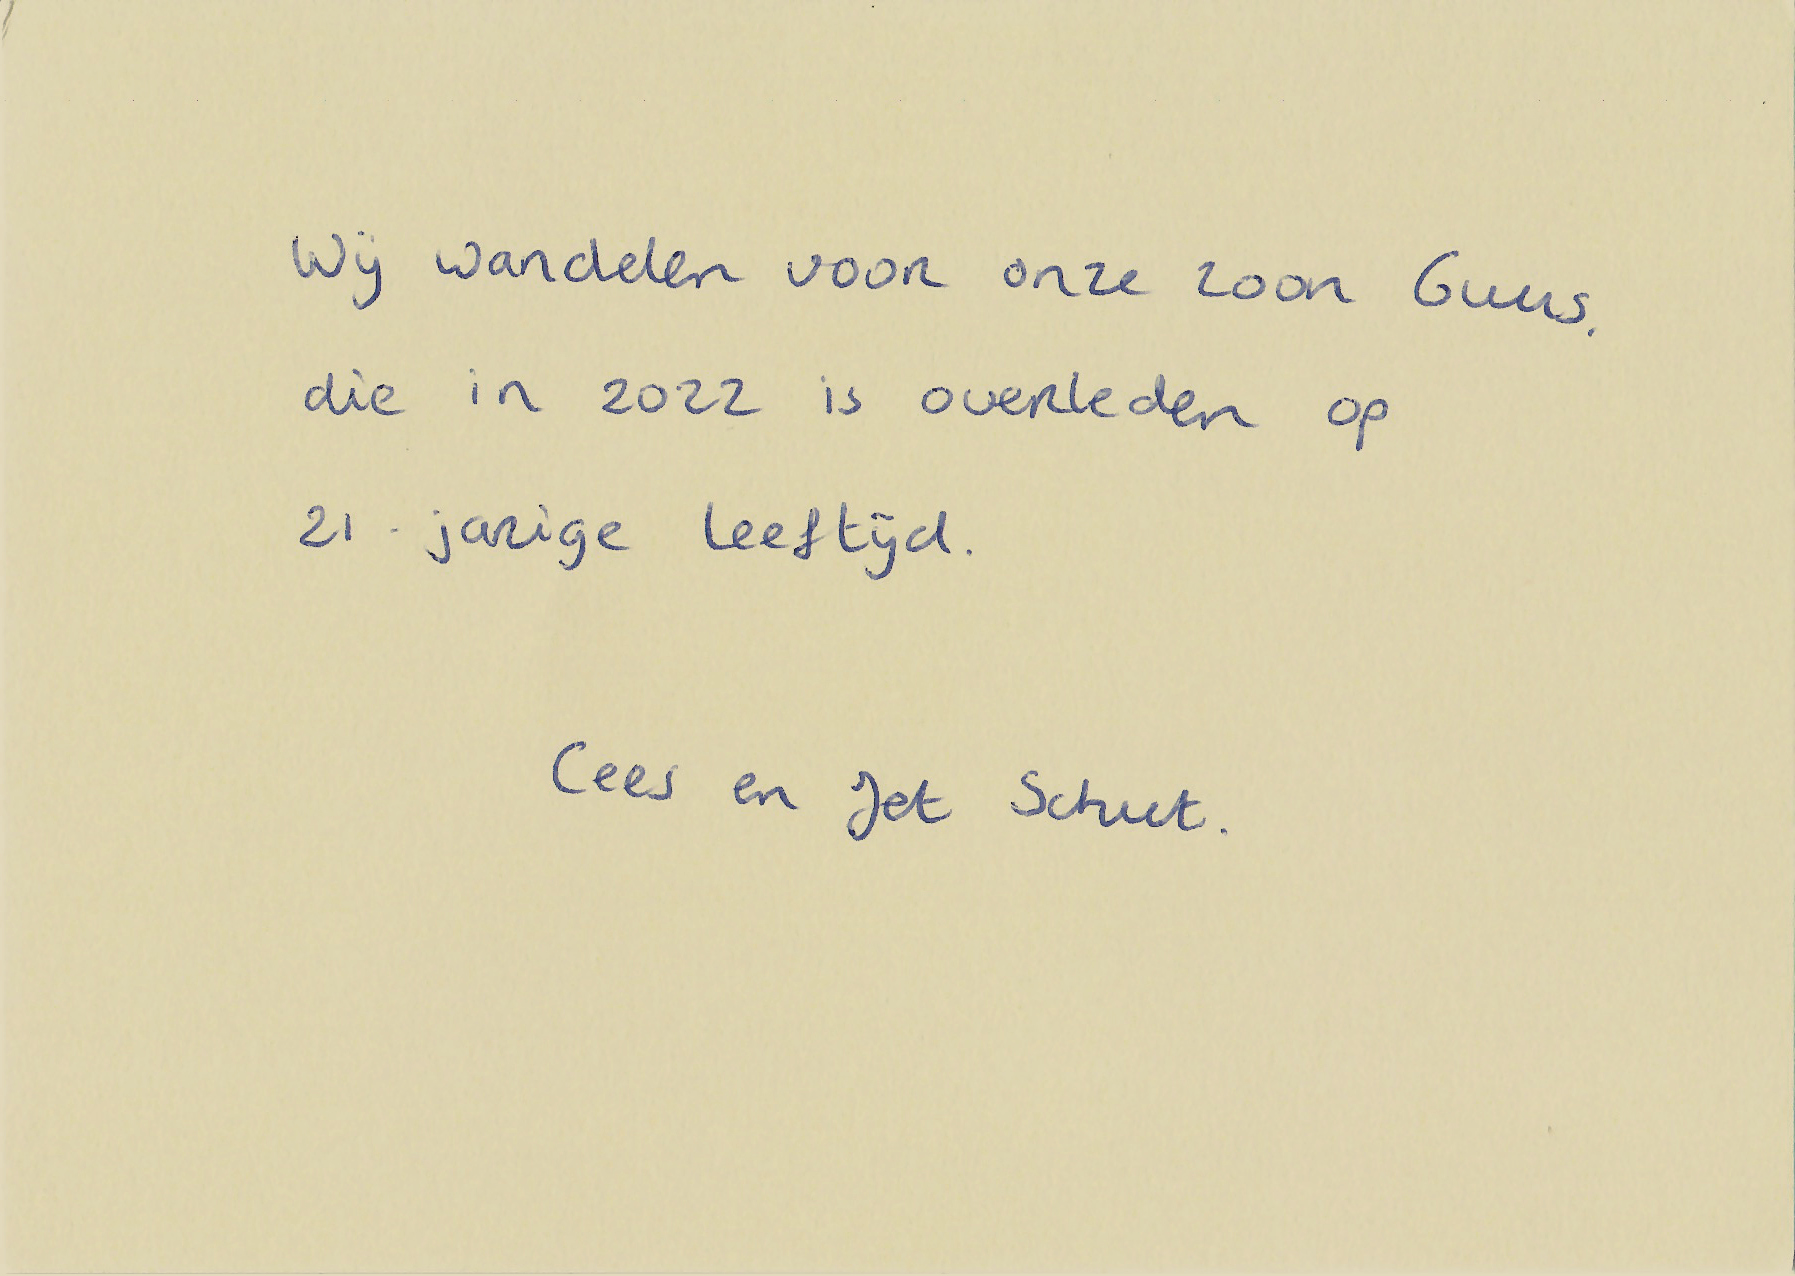 Wij wandelen voor onze zoon Guus,
die in 2022 is overleden op
21-jarige leeftijd.
Cees en Jet Schut.